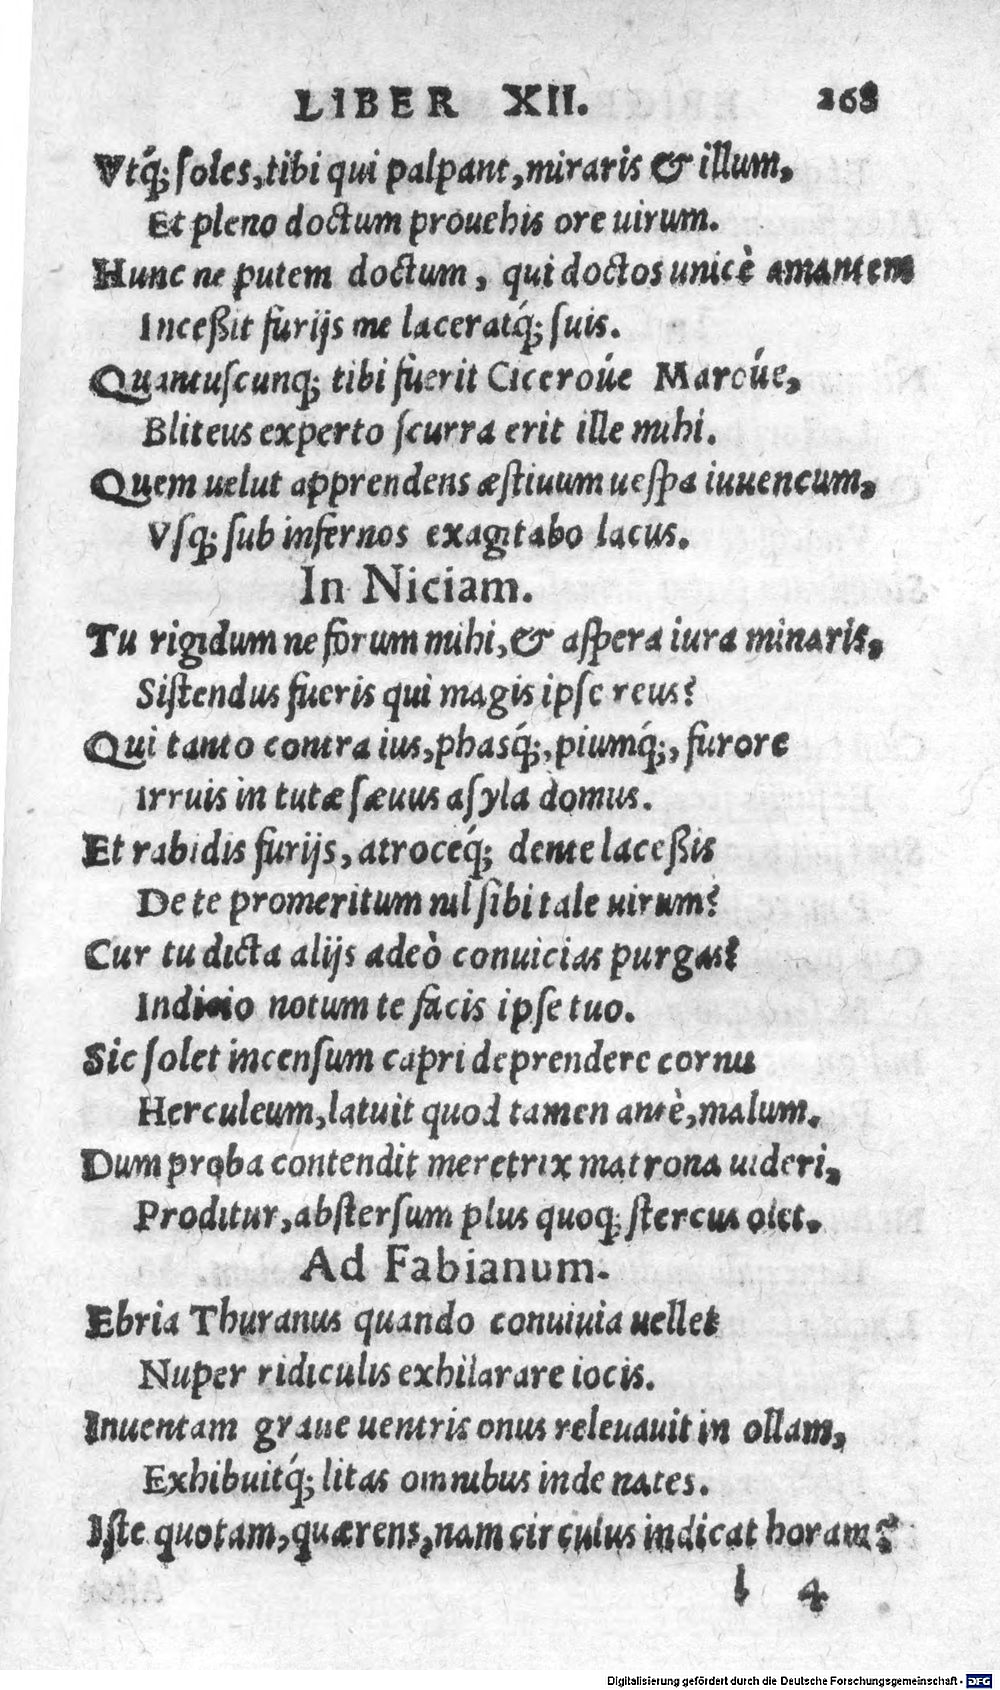 LIBER XII. 268
Vtq́; soles, tibi qui palpant, miraris & illum,
Et pleno doctum prouehis ore uirum.
Hunc ne putem doctum, qui doctos unicè amantem
Inceßit furijs me laceratq́; suis.
Quantuscunq; tibi fuerit Ciceroúe Maroúe,
Bliteus experto scurra erit ille mihi.
Quem uelut apprendens æstiuum uespa iuuencum,
Vsq; sub infernos exagitabo lacus.
In Niciam.
Tu rigidum ne forum mihi, & aspera iura minaris,
Sistendus fueris qui magis ipse reus?
Qui tanto contra ius, phasq́;, piumq́;, furore
Irruis in tutæ sæuus asyla domus.
Et rabidis furijs, atroceq́; dente laceßis
De te promeritum nil sibi tale uirum?
Cur tu dicta alijs adeò conuicias purgas?
Indicio notum te facis ipse tuo.
Sic solet incensum capri deprendere cornu
Herculeum, latuit quod tamen antè, malum.
Dum proba contendit meretrix matrona uideri,
Proditur, abstersum plus quoq; stercus olet.
Ad Fabianum.
Ebria Thuranus quando conuiuia uellet
Nuper ridiculis exhilarare iocis.
Inuentam graue uentris onus releuauit in ollam,
Exhibuitq́; litas omnibus inde nates.
Iste quotam, quærens, nam circulus indicat horam?
l 4
Digitalisierung gefördert durch die Deutsche Forschungsgemeinschaft - DFG